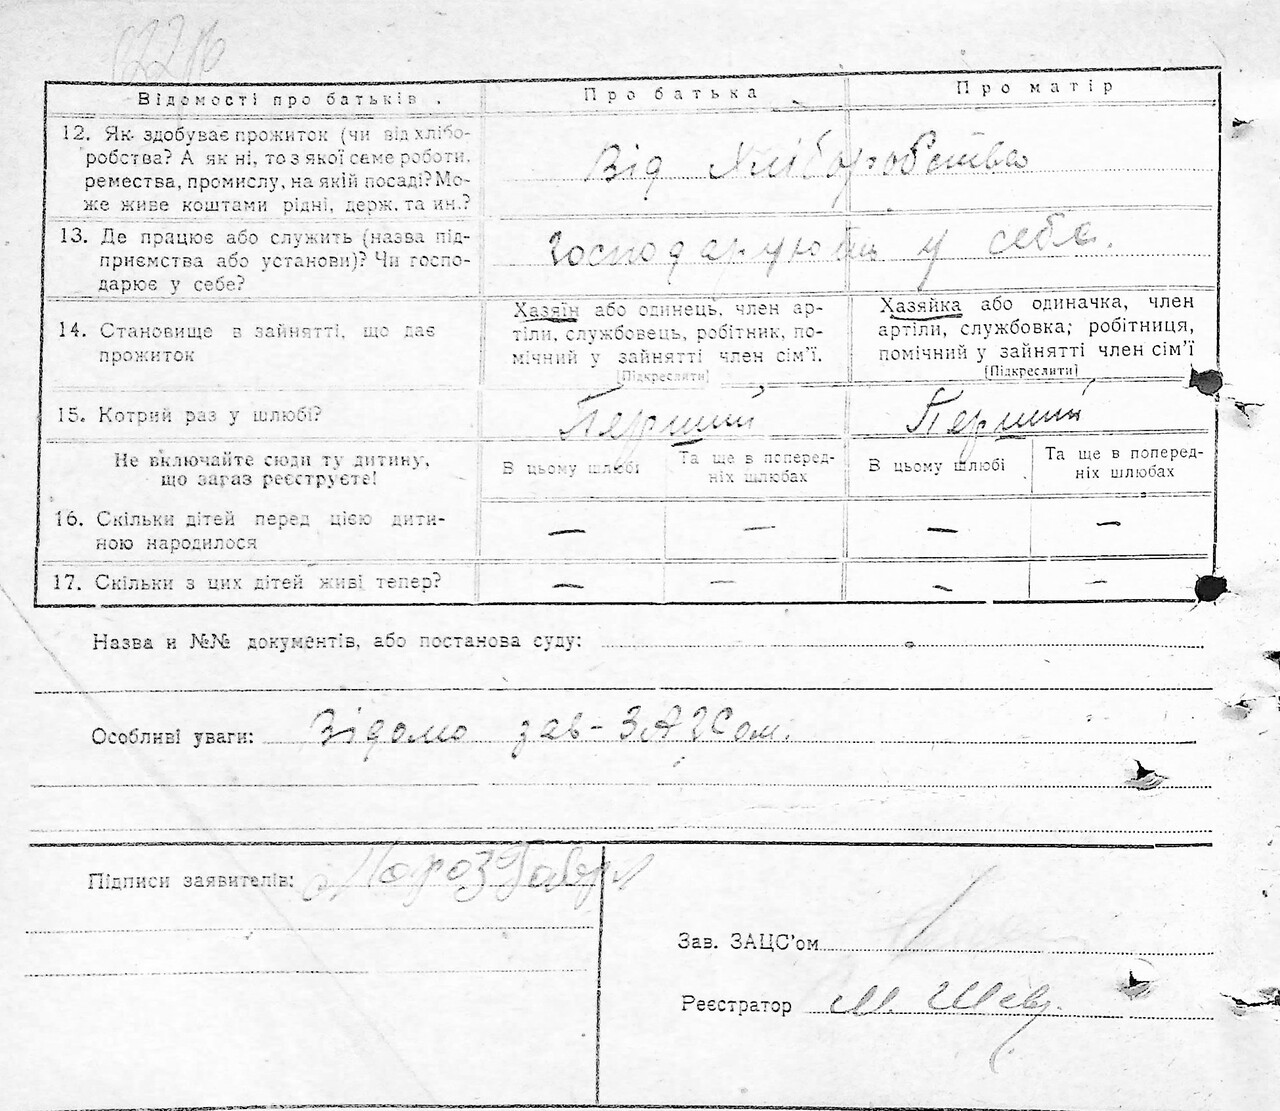 Відомості про батьків. Про батька Про матір
12. Як здобуває прожиток (чи від хлібо-
робства? А як ні, то з якої саме роботи,
ремества, промислу, на якій посаді? Мо-
же живе коштами рідні, держ. та ин.?
Від Хліборобства
13. Де працює або служить (назва під-
приємства або установи)? Чи госпо-
дарює у себе?
Господарюють у себе.
14. Становище в зайнятті, що дає
прожиток
Хазяїн або одинець, член ар-
тіли, службовець, робітник, по-
мічний у зайнятті член сім'ї.
(Підкреслити)
Хазяйка або одиначка, член
артіли, службовка; робітниця,
помічний у зайнятті член сім'ї
(Підкреслити)
15. Котрий раз у шлюбі? Перший Перший
Не включайте сюди ту дитину,
що зараз реєструєте!
В цьому шлюбі
Та ще в поперед-
ніх шлюбах
В цьому шлюбі
Та ще в поперед-
ніх шлюбах
16. Скільки дітей перед цією дити-
ною народилося
— — — —
17. Скільки з цих дітей живі тепер? — — — —
Назва и №№ документів, або постанова суду:
Особливі уваги: Відомо зав-ЗАГСом.
Підписи заявителів: Мороз
Зав. ЗАЦС'ом
Реєстратор М. Шев